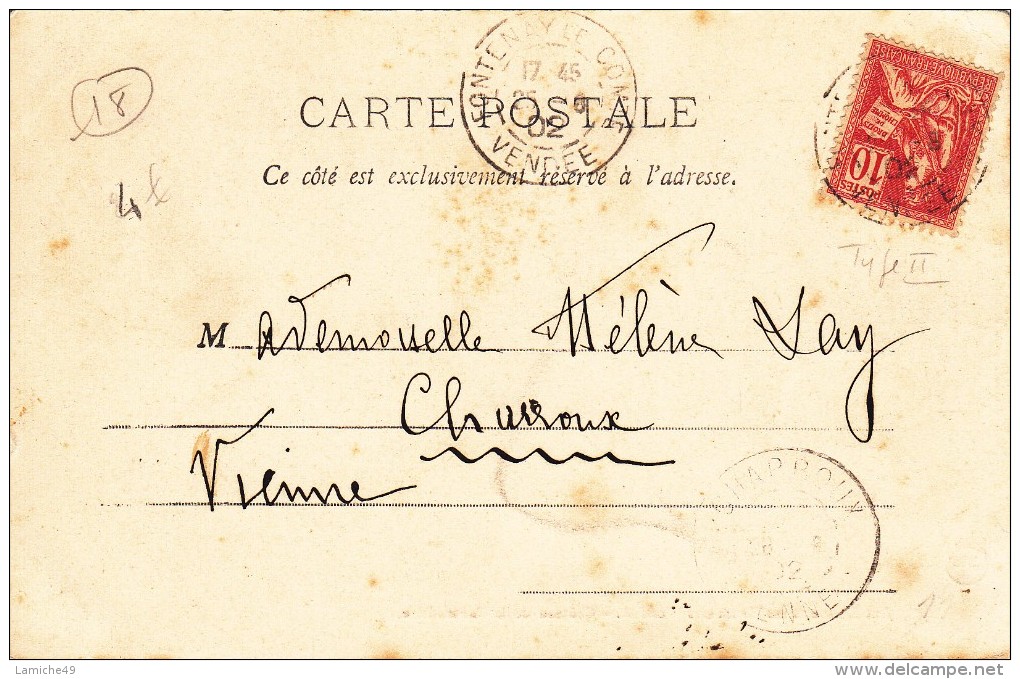 18
FONTENAY LE COMTE
17 45
25
02
VENDÉE
CARTE POSTALE
Ce côté est exclusivement réservé à l'adresse.
4
REPUBLIQUE FRANÇAISE
10
POSTES
Type II
Mademoiselle Hélène Lay
Charroux
Vienne
CHARROUX
02
Lamiche49
delcampe.net